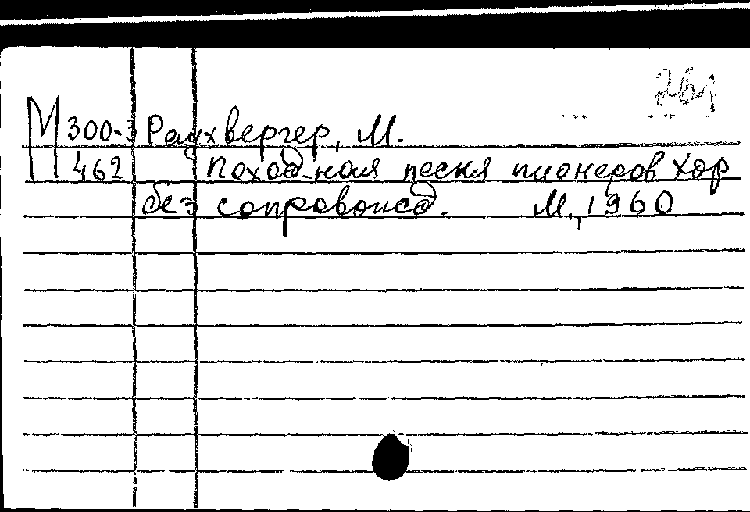 261
М 300-3 Раухвергер, М.
462 Походная песня пионеров Хор
без сопровожд. М., 1960